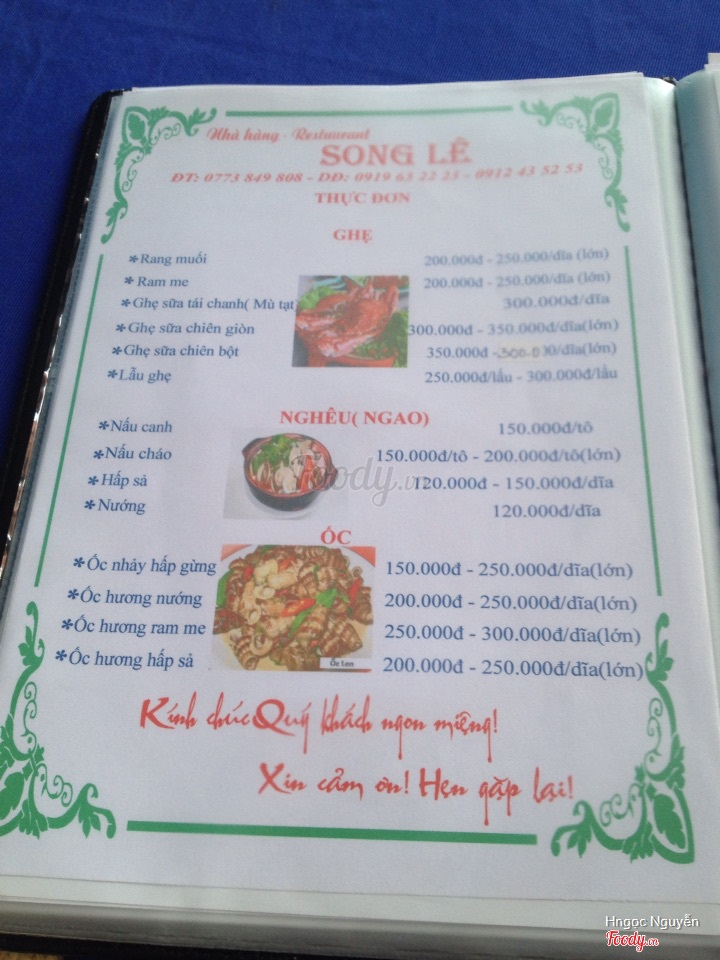 Nhà hàng - Restaurant
SONG LÊ
ĐT: 0773 849 808 - DĐ: 0919 63 22 23 - 0912 43 52 53
THỰC ĐƠN
GHẸ
*Rang muối 200.000đ - 250.000/dĩa (lớn)
*Ram me 200.000đ - 250.000/dĩa (lớn)
*Ghẹ sữa tái chanh( Mù tạt) 300.000đ/dĩa
*Ghẹ sữa chiên giòn 300.000đ - 350.000đ/dĩa(lớn)
*Ghẹ sữa chiên bột 350.000đ - /dĩa(lớn)
*Lẩu ghẹ 250.000đ/lẩu - 300.000đ/lẩu
NGHÊU( NGAO)
*Nấu canh 150.000đ/tô
*Nấu cháo 150.000đ/tô - 200.000đ/tô(lớn)
*Hấp sả 120.000đ - 150.000đ/dĩa
*Nướng 120.000đ/dĩa
Foody.vn
ỐC
*Ốc nhảy hấp gừng 150.000đ - 250.000đ/dĩa(lớn)
*Ốc hương nướng 200.000đ - 250.000đ/dĩa(lớn)
*Ốc hương ram me 250.000đ - 300.000đ/dĩa(lớn)
*Ốc hương hấp sả 200.000đ - 250.000đ/dĩa(lớn)
Ốc Len
Kính chúc Quý khách ngon miệng!
Xin cảm ơn! Hẹn gặp lại!
Hngoc Nguyễn
Foody.vn